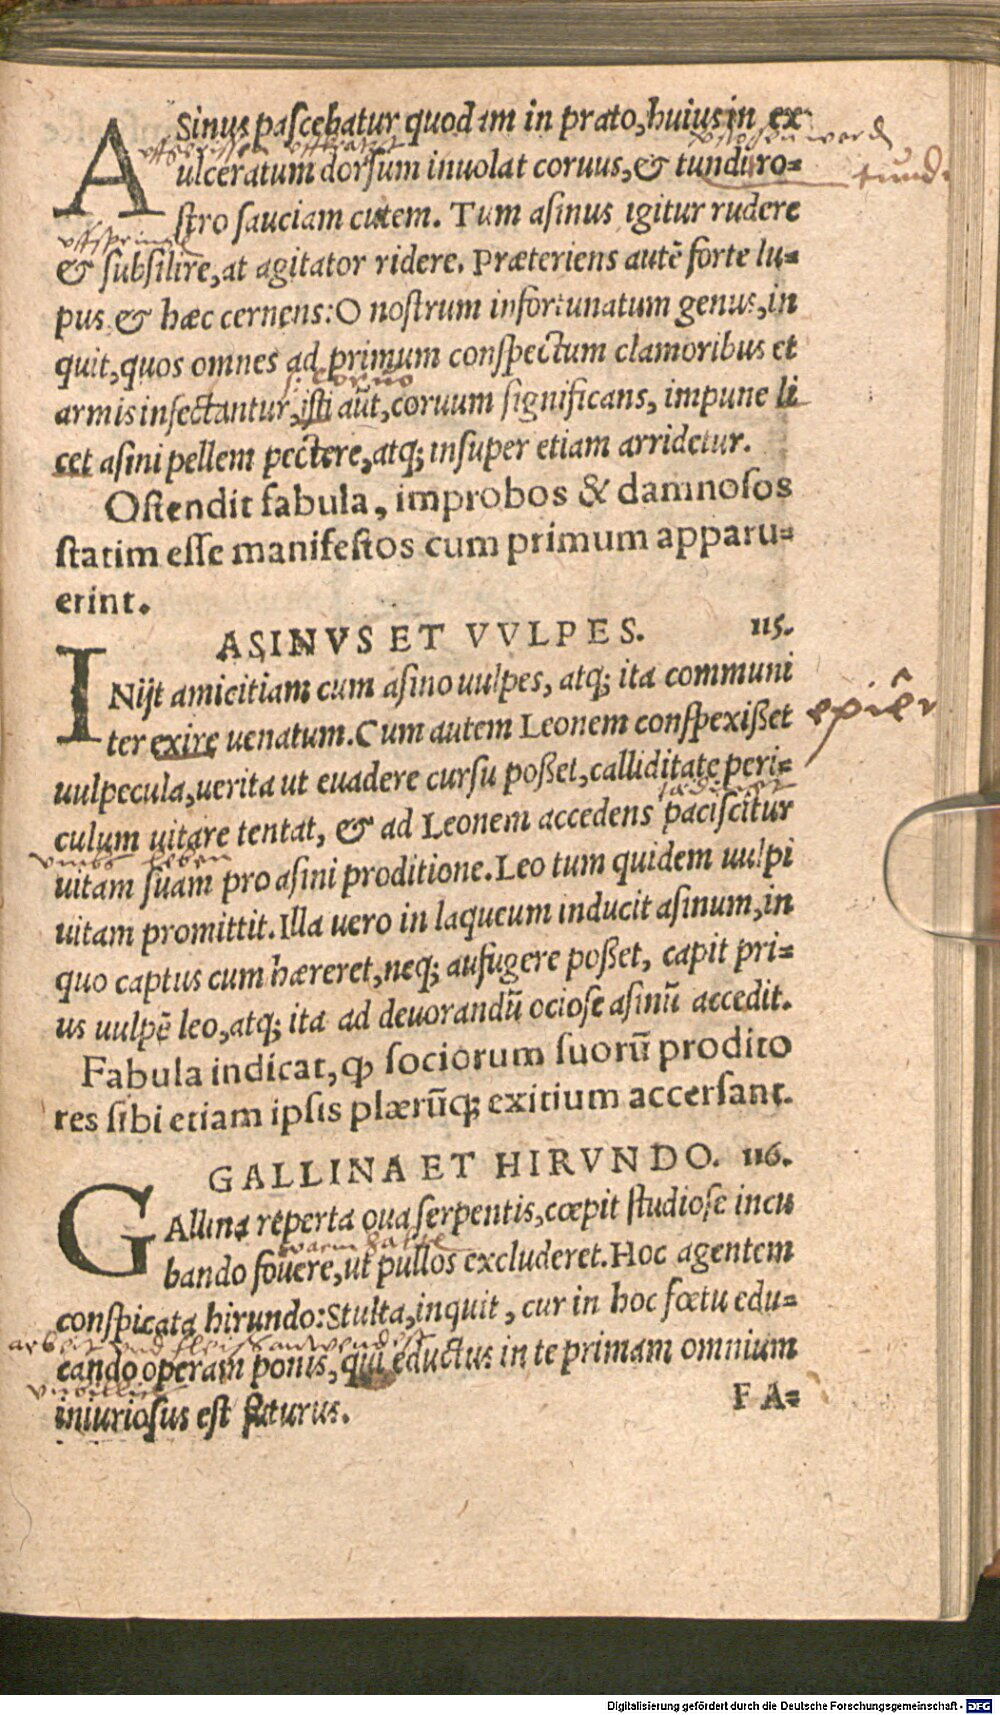 ASinus pascebatur quodam in prato, huius in ex
ulceratum dorsum inuolat coruus, & tundit ro=
stro sauciam cutem. Tum asinus igitur rudere
& subsilire, at agitator ridere. Præteriens autē forte lu=
pus & hæc cernens: O nostrum infortunatum genus, in
quit, quos omnes ad primum conspectum clamoribus et
armis insectantur, isti aūt, coruum significans, impune li
cet asini pellem pectere, atq; insuper etiam arridetur.
Ostendit fabula, improbos & damnosos
statim esse manifestos cum primum apparu=
erint.
ASINVS ET VVLPES. 115.
INijt amicitiam cum asino uulpes, atq; ita communi
ter exire uenatum. Cum autem Leonem conspexißet
uulpecula, uerita ut euadere cursu poßet, calliditate peri=
culum uitare tentat, & ad Leonem accedens paciscitur
vmbs leben
uitam suam pro asini proditione. Leo tum quidem uulpi
uitam promittit. Illa uero in laqueum inducit asinum, in
quo captus cum hæreret, neq; aufugere poßet, capit pri=
us uulpē leo, atq; ita ad deuorandū ociose asinū accedit.
Fabula indicat, ꝙ sociorum suorū prodito
res sibi etiam ipsis plærūq; exitium accersant.
GALLINA ET HIRVNDO. 116.
GAllina reperta oua serpentis, cœpit studiose incu
bando fouere, ut pullos excluderet. Hoc agentem
conspicata hirundo: Stulta, inquit, cur in hoc fœtu edu=
arbeit vnd fleis anwendest
cando operam ponis, qui eductus in te primam omnium
iniuriosus est futurus.
FA=
Digitalisierung gefördert durch die Deutsche Forschungsgemeinschaft - DFG